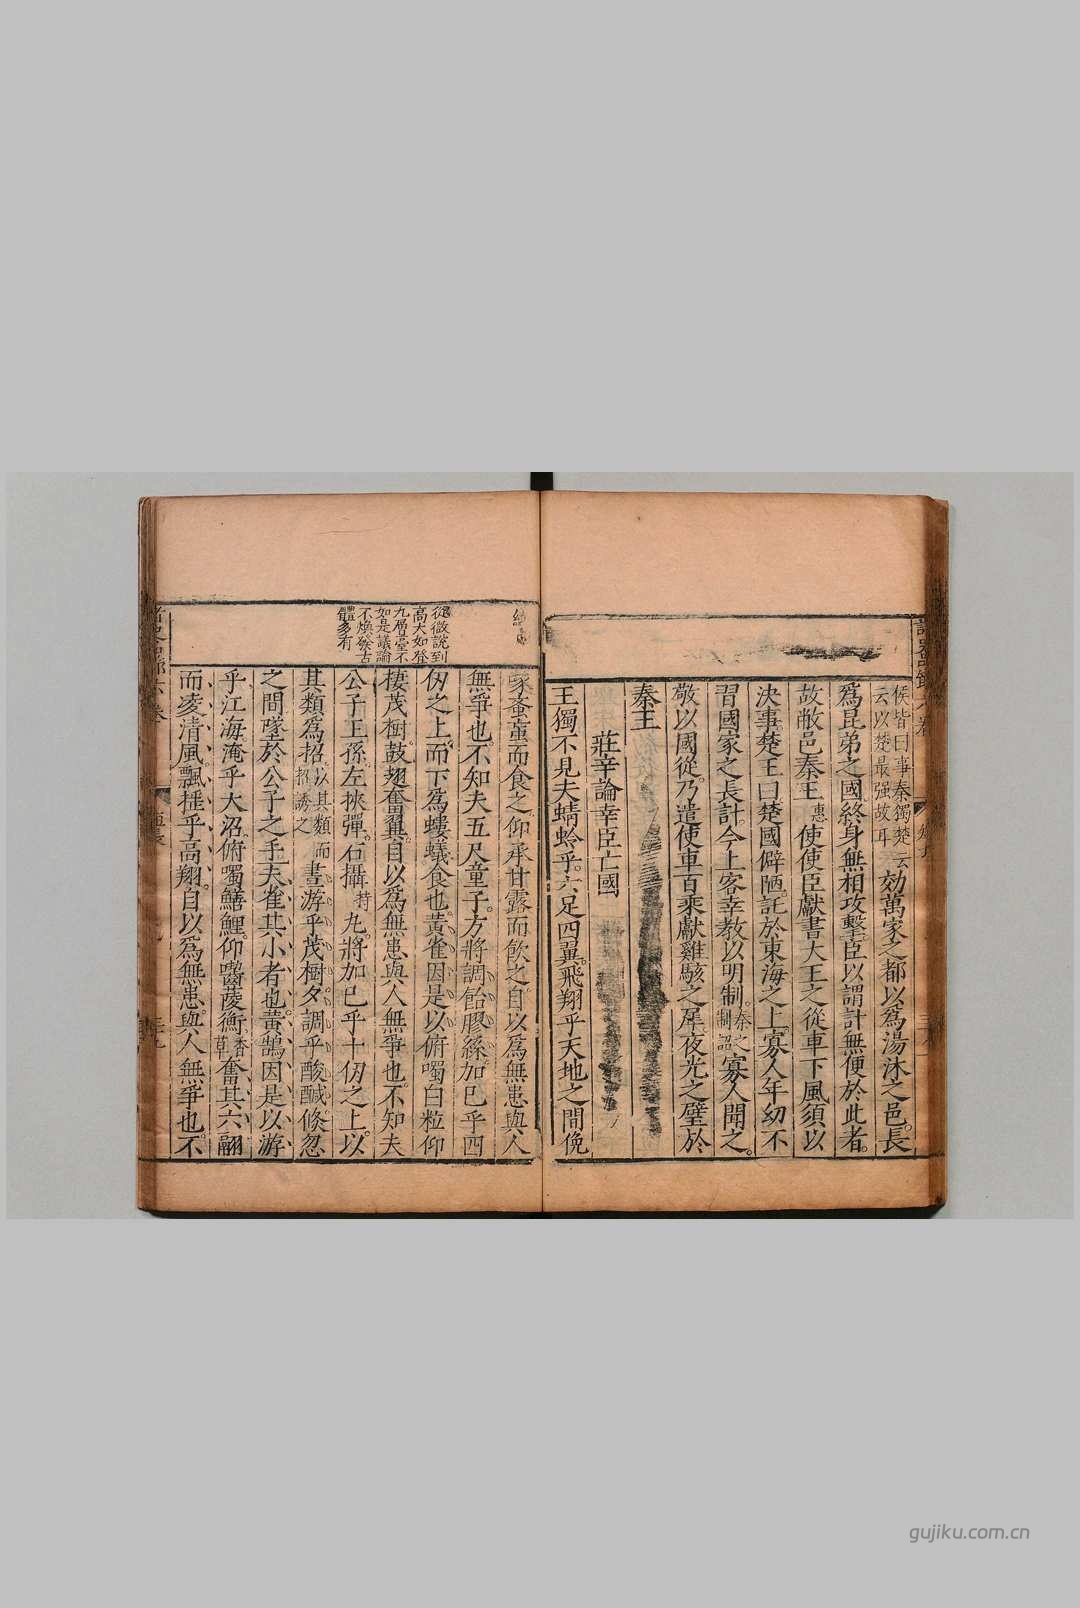 侯皆曰事秦獨楚云
云以楚最强故耳
効萬家之都以為湯沐之邑長
為昆弟之國終身無相攻擊臣以謂計無便於此者
故敝邑秦王惠使使臣獻書大王之從車下風須以
決事楚王曰楚國僻陋託於東海之上寡人年幼不
習國家之長計今上客幸教以明制秦之制詔寡人聞之
敬以國從乃遣使車百乘獻雞駭之犀夜光之璧於
秦王
莊辛論幸臣亡國
王獨不見夫蜻蛉乎六足四翼飛翔乎天地之間俛
從微說到
高大如登
九層臺不
如是議論
不煥發古
體多有
蚉蝱而食之仰承甘露而飲之自以為無患與人
無爭也不知夫五尺童子方將調飴膠絲加巳乎四
仞之上而下為螻蟻食也黃雀因是以俯噣白粒仰
棲茂樹鼓翅奮翼自以為無患與人無爭也不知夫
公子王孫左挾彈右攝持丸將加巳乎十仞之上以
其類為招以其類而招誘之晝游乎茂樹夕調乎酸醎倏忽
之間墜於公子之手夫雀其小者也黃鵠因是以游
乎江海淹乎大沼俯噣鱔鯉仰嚙蔆衡香草奮其六翮
而凌清風飄搖乎高翔自以為無患與人無爭也不
gujiku.com.cn